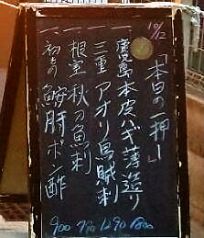 10/12
「本日の一押し」
一、鹿児島 本皮ハギ薄造り
一、三重 アオリ烏賊刺
一、根室 秋刀魚刺
一、初もの 鮟肝ポン酢
900 790 1290 1800